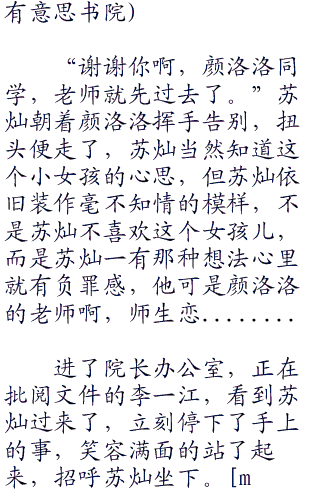 有意思书院)
“谢谢你啊，颜洛洛同
学，老师就先过去了。”苏
灿朝着颜洛洛挥手告别，扭
头便走了，苏灿当然知道这
个小女孩的心思，但苏灿依
旧装作毫不知情的模样，不
是苏灿不喜欢这个女孩儿，
而是苏灿一有那种想法心里
就有负罪感，他可是颜洛洛
的老师啊，师生恋........
进了院长办公室，正在
批阅文件的李一江，看到苏
灿过来了，立刻停下了手上
的事，笑容满面的站了起
来，招呼苏灿坐下。[m